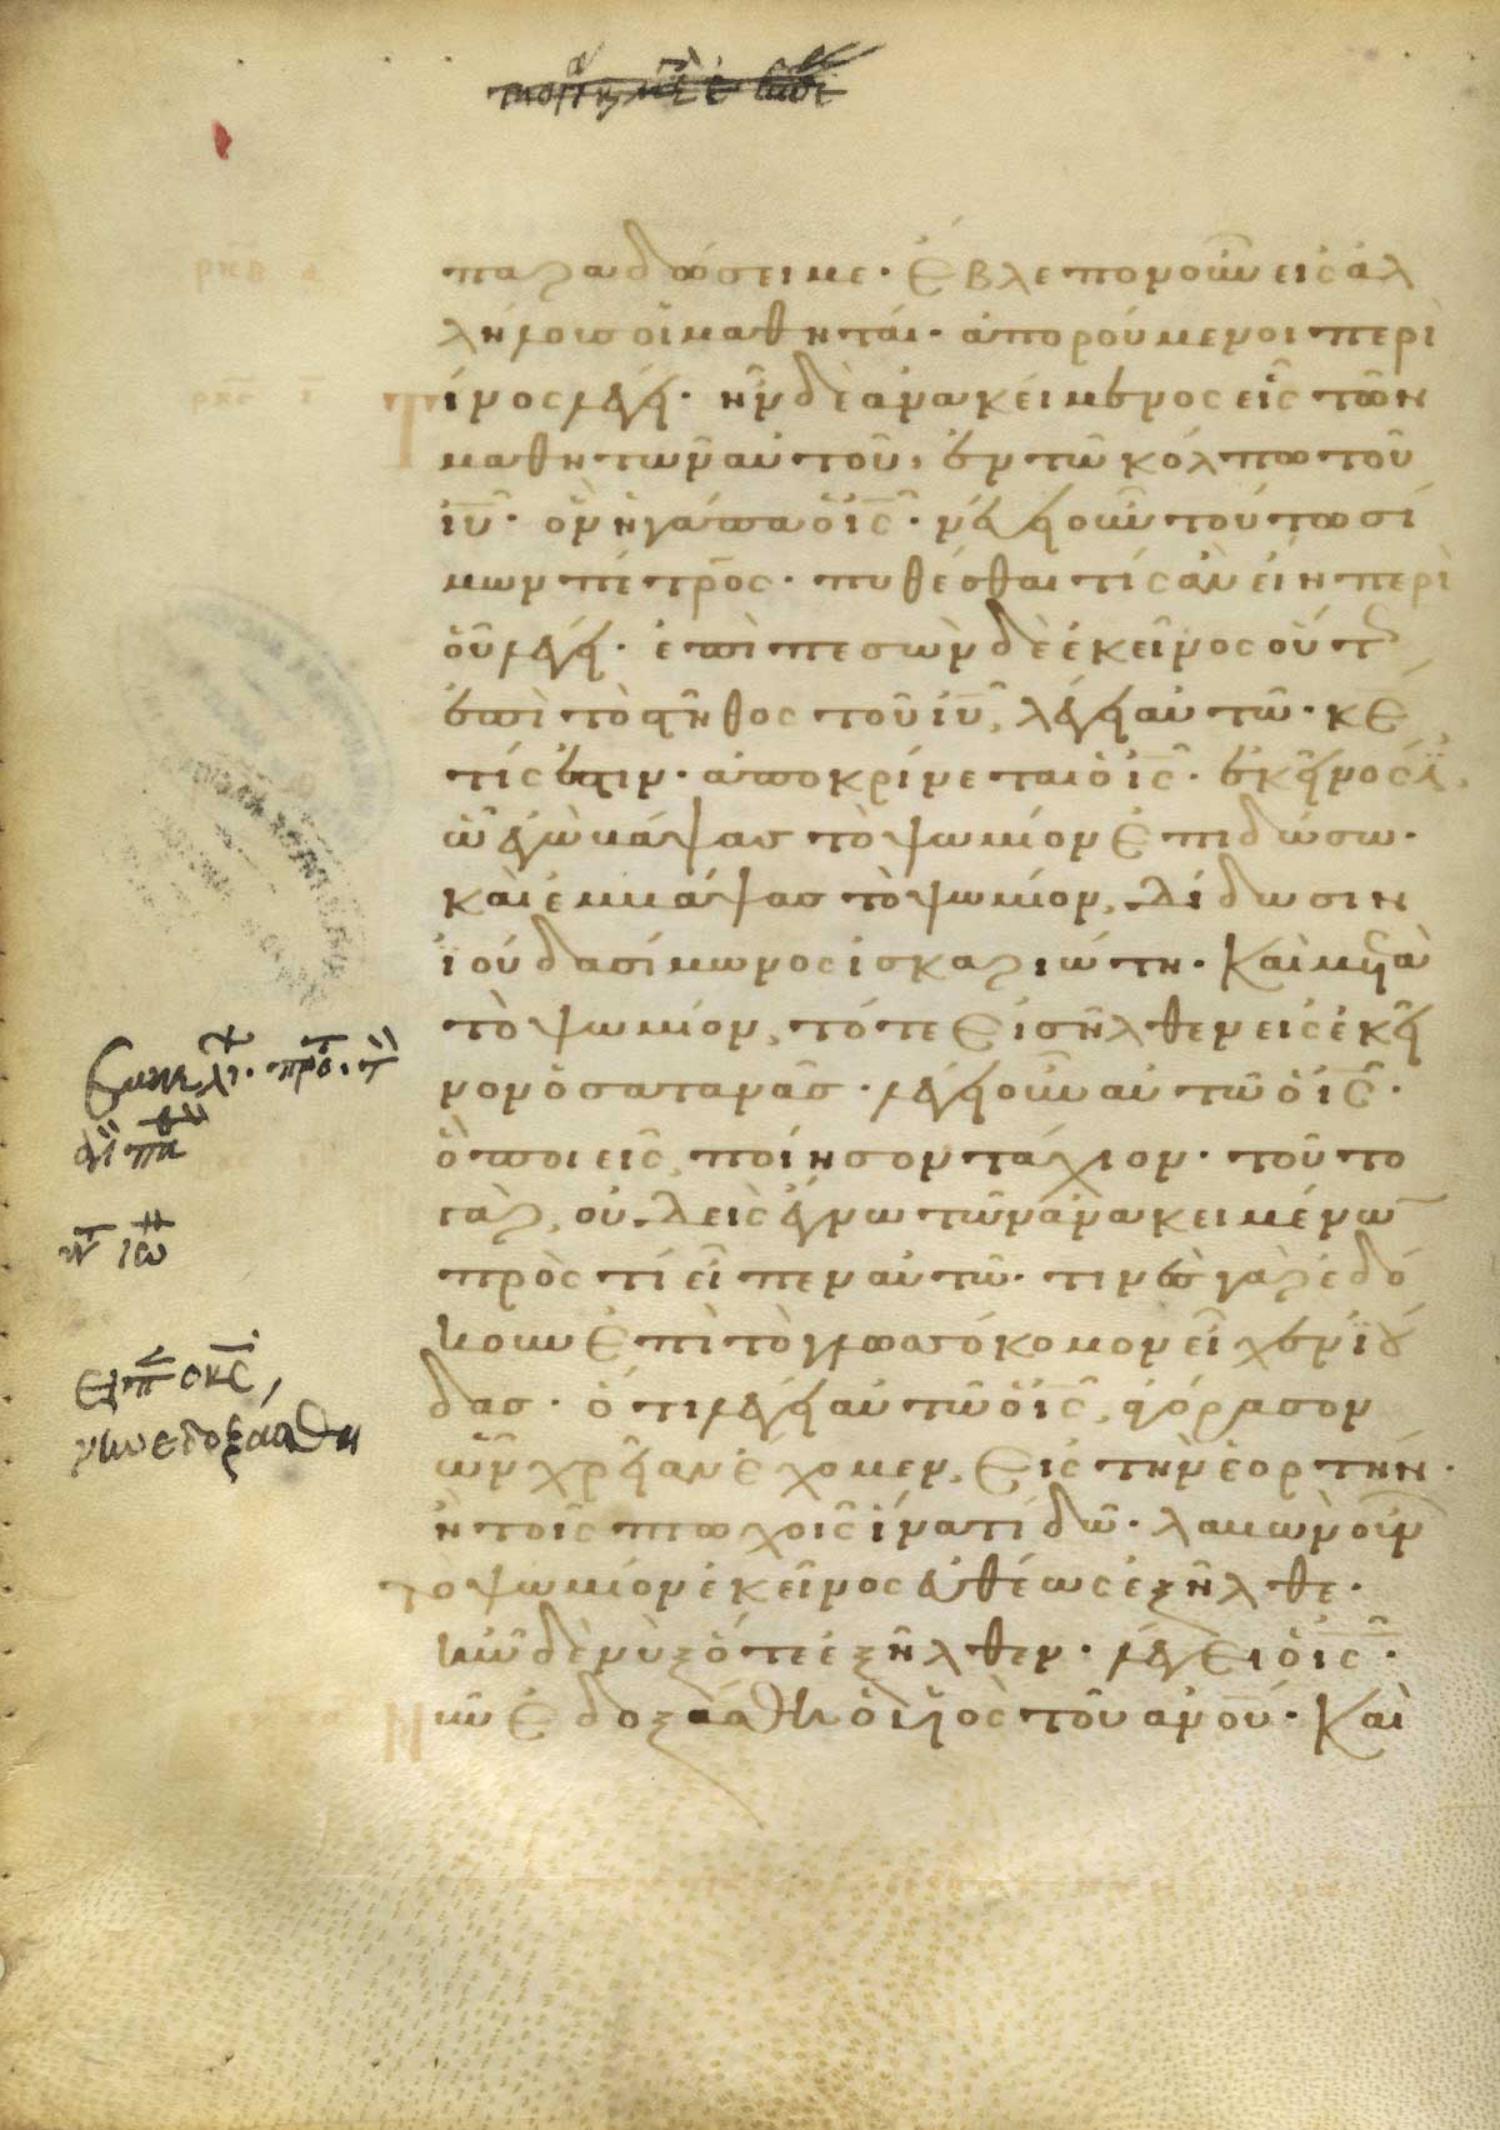 ρκβ δ
παραδώσει με· ἔβλεπον οὖν εἰς ἀλ
λήλους οἱ μαθηταί· ἀπορούμενοι περὶ
τίνος λέγει· ἦν δὲ ἀνακείμενος εἷς τῶν
μαθητῶν αὐτοῦ, ἐν τῶ κόλπω τοῦ
ιυ· ὃν ἠγάπα ὁ ις· νεύει οὖν τούτω σί
μων πέτρος· πυθέσθαι τίς ἂν εἴη περὶ
οὗ λέγει· ἐπιπεσὼν δὲ ἐκεῖνος οὕτ
ἐπὶ τὸ στῆθος τοῦ ιυ, λέγει αὐτῶ· κε
τίς ἐστιν· ἀποκρίνεται ὁ ις· ἐκεῖνός ἐ
ὧ ἐγὼ βάψας τὸ ψωμίον ἐπιδώσω·
καὶ ἐμβάψας τὸ ψωμίον, δίδωσιν
ἰούδα σίμωνος ἰσκαριώτη· καὶ μετὰ
τὸ ψωμίον, τότε εἰσῆλθεν εἰς ἐκεῖ
νον ὁ σατανᾶς· λέγει οὖν αὐτῶ ὁ ις·
ὃ ποιεῖς, ποίησον τάχιον· τοῦτο
γὰρ, οὐδεὶς ἔγνω τῶν ἀνακειμένω
πρὸς τί εἶπεν αὐτῶ· τινὲς γὰρ ἐδό
κουν ἐπὶ τὸ γλωσσόκομον εἶχεν ἰού
δας· ὅτι λέγει αὐτῶ ὁ ις, ἀγόρασον
ὧν χρείαν ἔχομεν, εἰς τὴν ἑορτήν·
ἢ τοῖς πτωχοῖς ἵνα τί δῶ· λαβὼν οὖν
τὸ ψωμίον ἐκεῖνος εὐθέως ἐξῆλθε·
ἦν δὲ νὺξ ὅτε ἐξῆλθεν· λέγει ὁ ις·
νῦν ἐδοξάσθη ὁ υἱὸς τοῦ ανου· καὶ
εἶπ ο κς,
νῦν ἐδοξάσθη